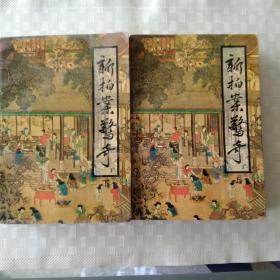 新拍案驚奇
新拍案驚奇